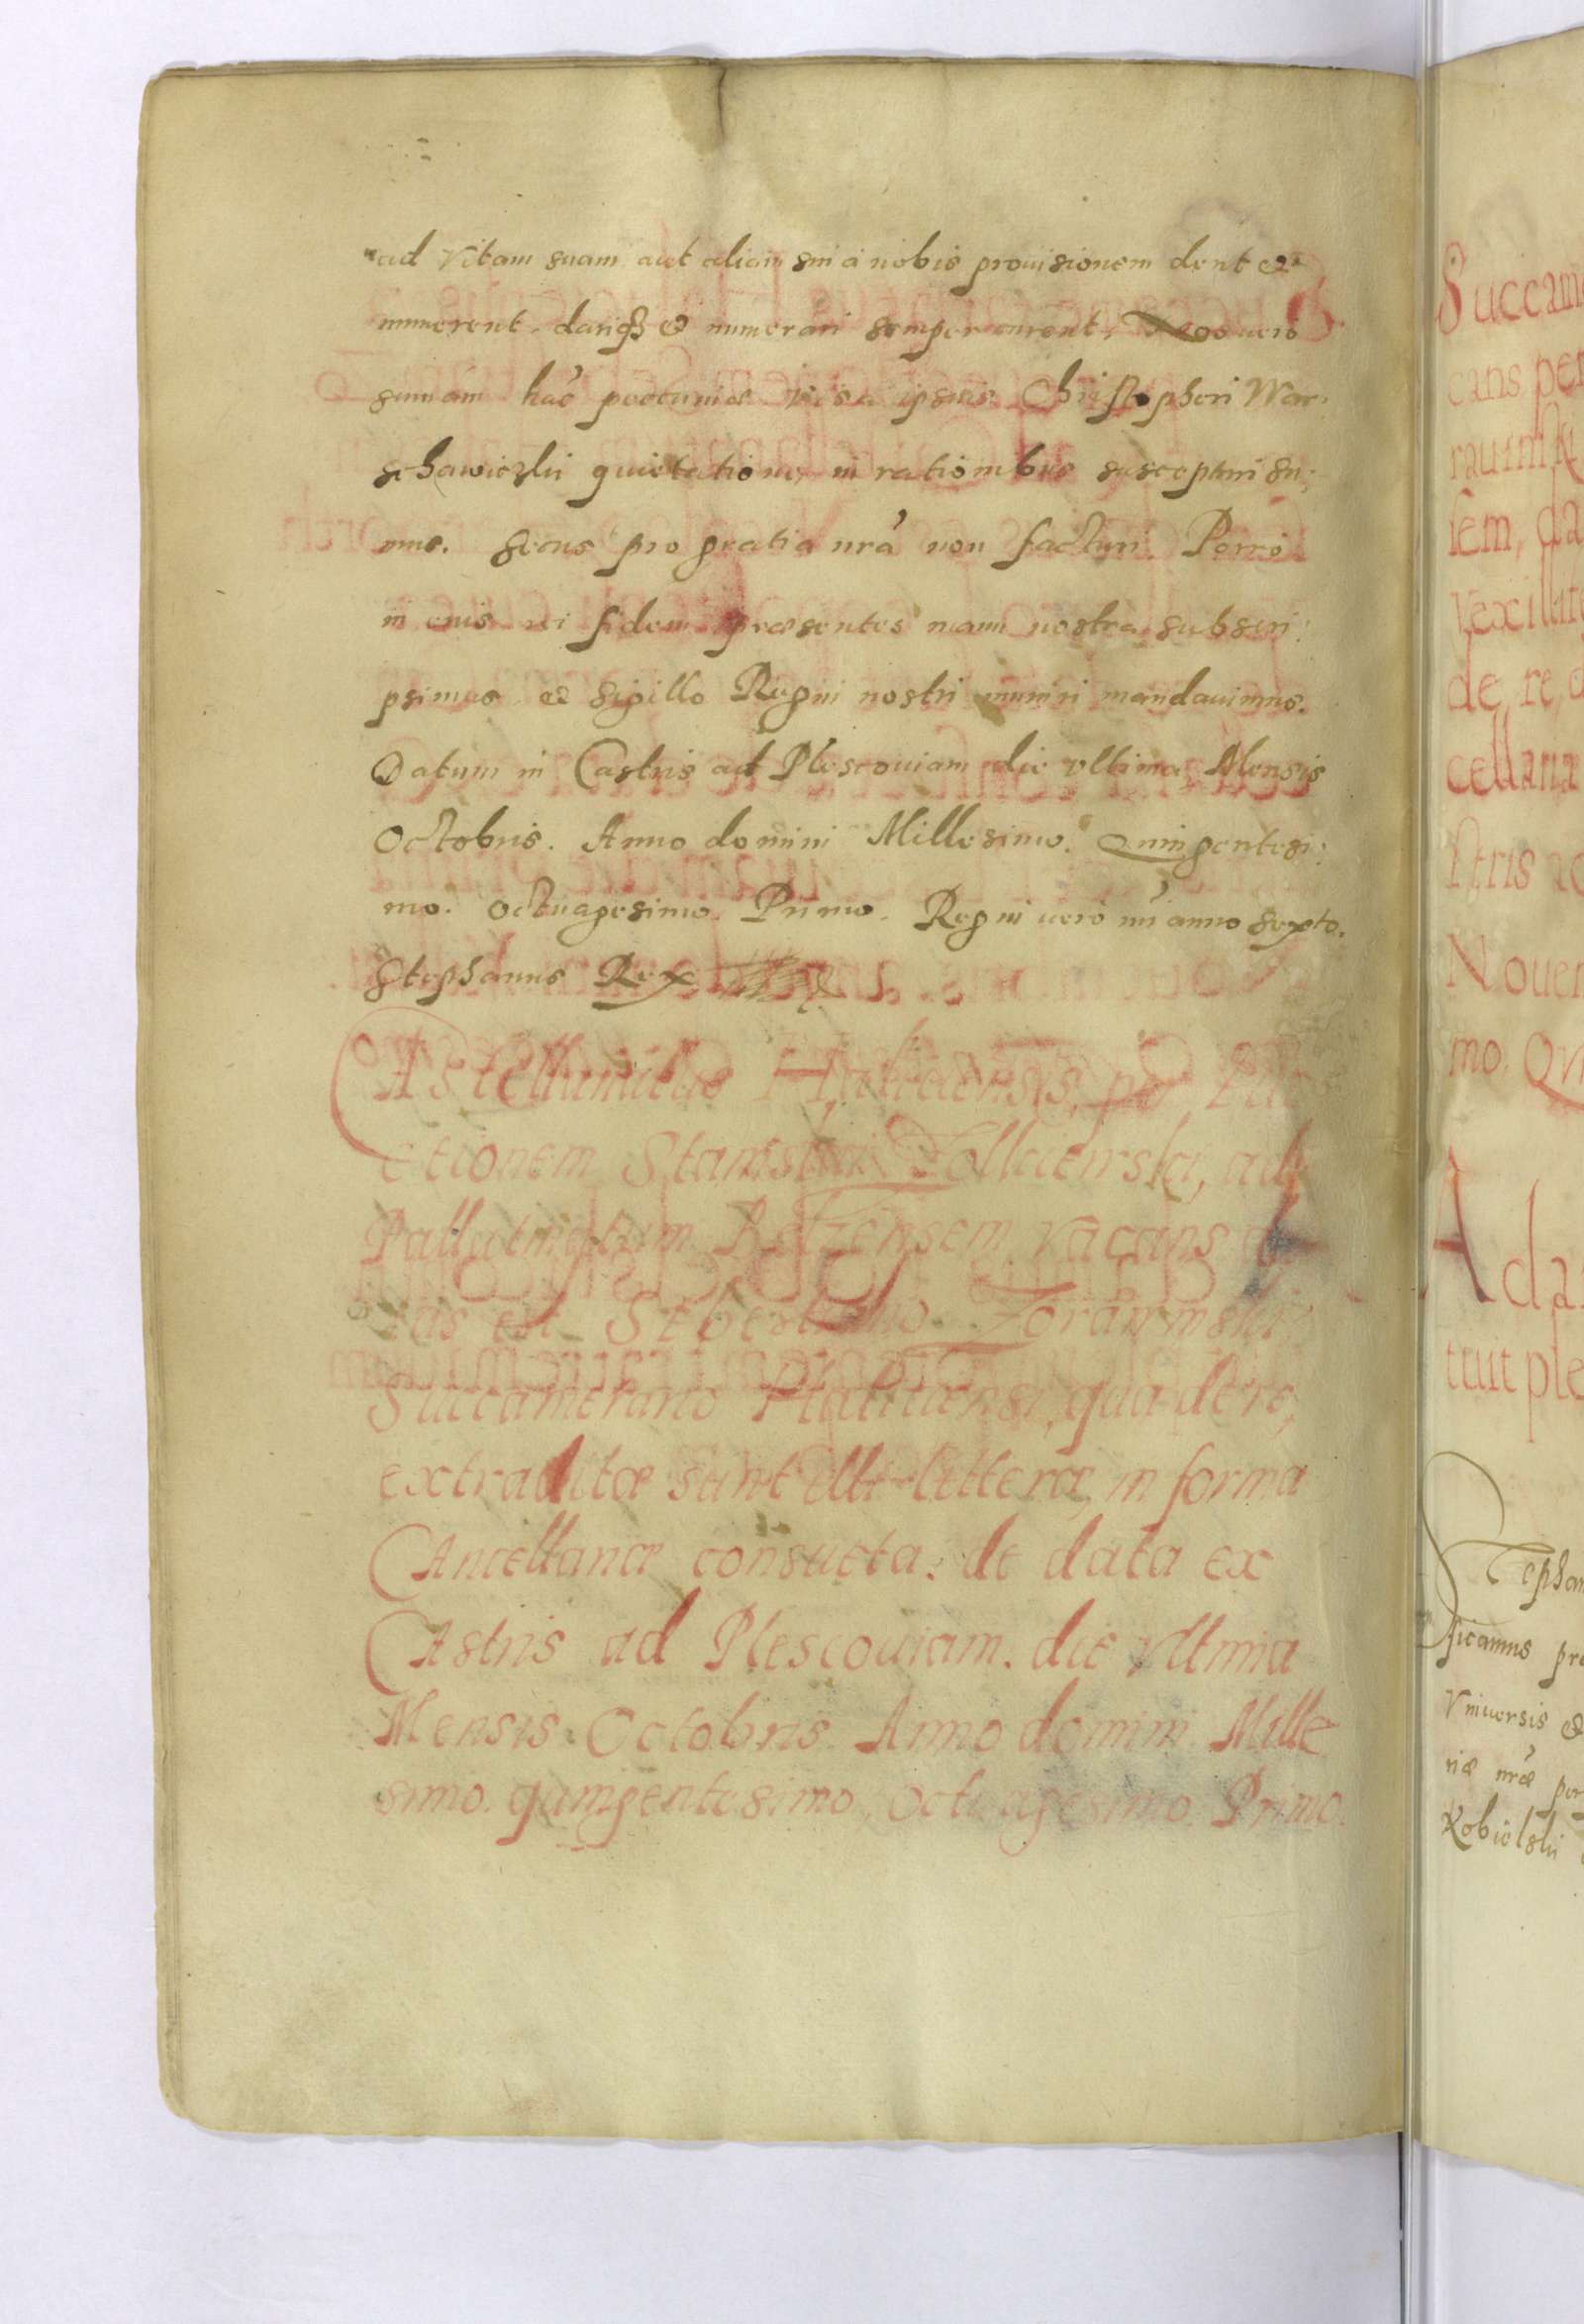 ad Vitam suam aut aliam sui a nobis prouisionem dent et
numerent. dariq3 et numerari semper curent. Nos uero
summam hac pecuniae visa ipsius Christopheri War:
schawiczkii quietatione, in rationibus suscepturi su:
mus. Secus pro gratia nra non facturi. Porro
in cuius rei fidem praesentes manu nostra subscri:
psimus et sigillo Regni nostri muniri mandauimus.
Datum in Castris ad Plescouiam die vltima Mensis
Octobris. Anno domini Millesimo. Quingentesi:
mo. Octuagesimo. Primo. Regni uero nri anno sexto.
Stephanus Rex
CAstellanatus Haliciensis, per
ctionem Stanislai Zolkiewski, ad
Pallatinatum Belzensem vacans
tus est Zorawinskii
Succamerario Haliciensi, qua de re,
extraditae sunt illi litterae, in forma
CAncellariae consueta: de data ex
CAstris ad Plescouiam. die vltima
Mensis Octobris Anno domini Mille
simo. quingentesimo. Octuagesimo. Primo.
Succam
cans per
rauinski
sem, da
Vexillife
de re, e
cellaria
stris ad
Nouem
mo. Qvi
Ada
tuit ple
Stephan
ficamus pr
Vniuersis et
riae nrae per
Kobielski